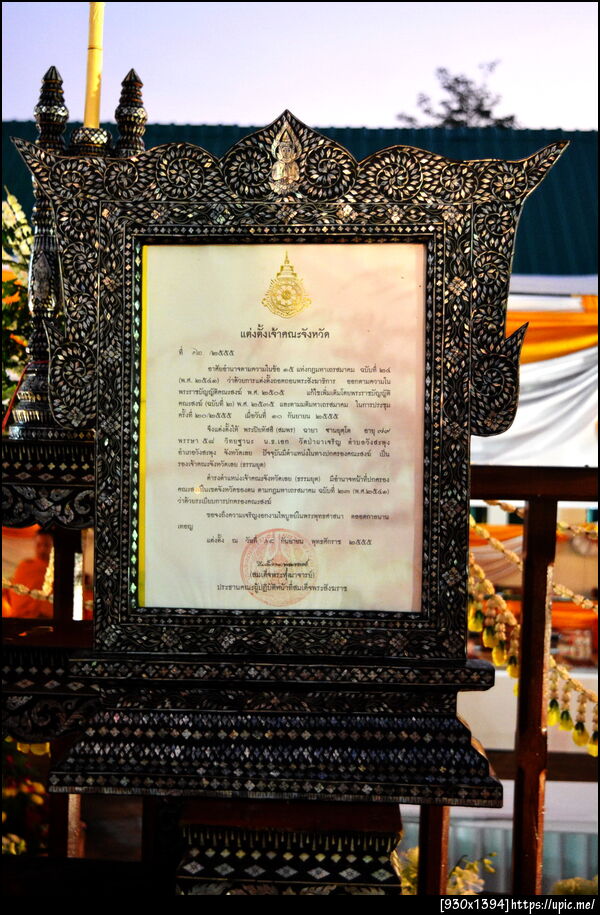 แต่งตั้งเจ้าคณะจังหวัด
ที่ ๗๒ /๒๕๕๕
อาศัยอำนาจตามความในข้อ ๑๕ แห่งกฎมหาเถรสมาคม ฉบับที่ ๒๔
(พ.ศ. ๒๕๔๑) ว่าด้วยการแต่งตั้งถอดถอนพระสังฆาธิการ ออกตามความใน
พระราชบัญญัติคณะสงฆ์ พ.ศ. ๒๕๐๕ แก้ไขเพิ่มเติมโดยพระราชบัญญัติ
คณะสงฆ์ (ฉบับที่ ๒) พ.ศ. ๒๕๓๕ และตามมติมหาเถรสมาคม ในการประชุม
ครั้งที่ ๒๐/๒๕๕๕ เมื่อวันที่ ๑๐ กันยายน ๒๕๕๕
จึงแต่งตั้งให้ พระปิยทัสสี (สมพร) ฉายา ชานยุตฺโต อายุ ๗๙
พรรษา ๕๘ วิทยฐานะ น.ธ.เอก วัดป่าผาเจริญ ตำบลวังสะพุง
อำเภอวังสะพุง จังหวัดเลย ปัจจุบันมีตำแหน่งในทางปกครองคณะสงฆ์ เป็น
รองเจ้าคณะจังหวัดเลย (ธรรมยุต)
ดำรงตำแหน่งเจ้าคณะจังหวัดเลย (ธรรมยุต) มีอำนาจหน้าที่ปกครอง
คณะสงฆ์ในเขตจังหวัดของตน ตามกฎมหาเถรสมาคม ฉบับที่ ๒๓ (พ.ศ.๒๕๔๑)
ว่าด้วยระเบียบการปกครองคณะสงฆ์
ขอจงถึงความเจริญงอกงามไพบูลย์ในพระพุทธศาสนา ตลอดกาลนาน
เทอญ
แต่งตั้ง ณ วันที่ ๑๘ กันยายน พุทธศักราช ๒๕๕๕
(สมเด็จพระพุฒาจารย์)
ประธานคณะผู้ปฏิบัติหน้าที่สมเด็จพระสังฆราช
[930x1394]https://upic.me/